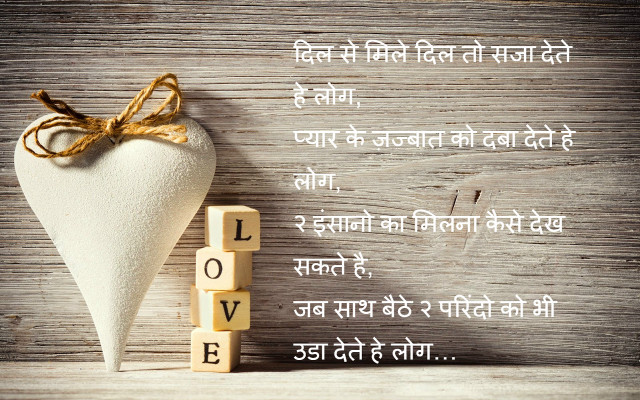 दिल से मिले दिल तो सजा देते
हे लोग,
प्यार के जज्बात को दबा देते हे
लोग,
२ इंसानो का मिलना कैसे देख
सकते है,
जब साथ बैठे २ परिंदो को भी
उडा देते हे लोग...
L
O
V
E